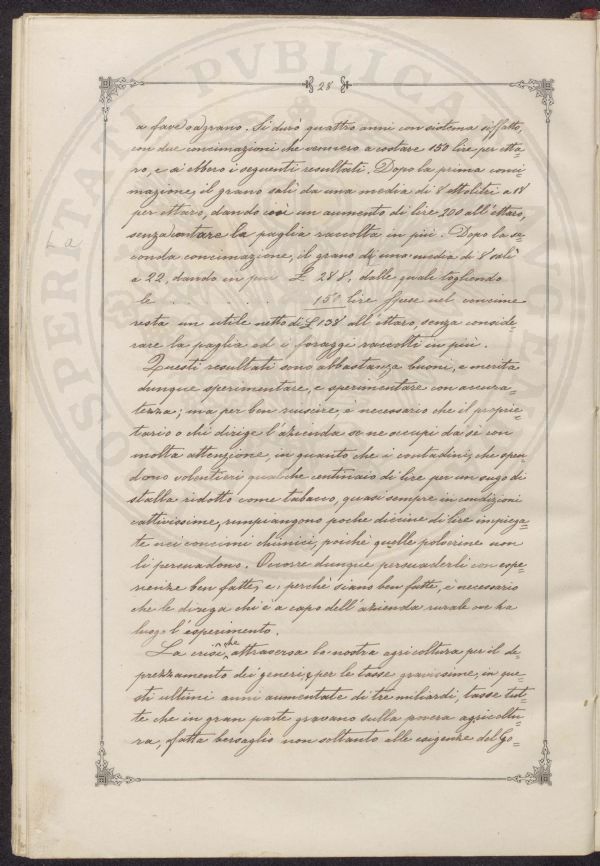 28
a fave od grano. Si durò quattro anni con sistema siffatto,
con due concimazioni che vennero a costare 150 lire per etta=
ro, e si ebbero i seguenti resultati. Dopo la prima conci=
mazione, il grano salì da una media di 8 ettolitri a 18
per ettaro, dando così un aumento di lire 200 all'ettaro,
senza contare la paglia raccolta in più. Dopo la se=
conda concimazione, il grano di una media di 8 salì
a 22, dando in più £ 288, dalle quale togliendo
le . . . . 150 lire spese nel concime
resta un utile netto di £ 138 all'ettaro, senza conside=
rare la paglia ed i foraggi raccolti in più.
Questi resultati sono abbastanza buoni, e merita
dunque sperimentare, e sperimentare con accura=
tezza; ma per ben riuscire, è necessario che il proprie=
tario o chi dirige l'azienda se ne occupi da sè con
molta attenzione, in quanto che i contadini, che spen=
dono volentieri qualche centinaio di lire per un sugo di
stalla ridotto come tabacco, quasi sempre in condizioni
cattivissime, rimpiangono poche diecine di lire impiega=
te nei concimi chimici, poichè quelle polverine non
li persuadono. Occorre dunque persuaderli con espe=
rienze ben fatte, e perchè siano ben fatte, è necessario
che le diriga chi è a capo dell'azienda rurale ove ha
luogo l'esperimento.
La crisi, che attraversa la nostra agricoltura per il de=
prezzamento dei generi, e per le tasse gravissime, in que=
sti ultimi anni aumentate di tre miliardi, tasse tut=
te che in gran parte gravano sulla povera agricoltu=
ra, fatta bersaglio non soltanto alle esigenze del Go=
PVBLICAE
OSPERITATI
AVGEN